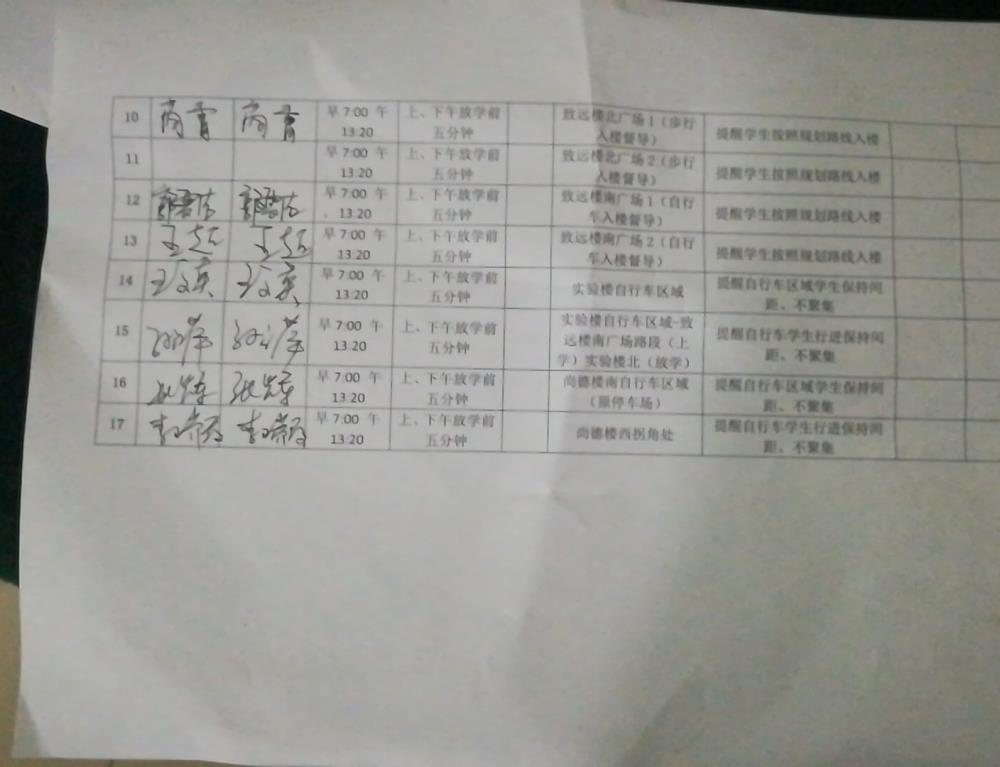 10 早 7:00 午 上、下午放学前 致远楼北广场 1（步行
13:20 五分钟 入楼督导） 提醒学生按照规划路线入楼
11 早 7:00 午 上、下午放学前 致远楼北广场 2（步行
13:20 五分钟 入楼督导） 提醒学生按照规划路线入楼
12 早 7:00 午 上、下午放学前 致远楼南广场 1（自行
、13:20 五分钟 车入楼督导） 提醒学生按照规划路线入楼
13 王超 王超 早 7:00 午 上、下午放学前 致远楼南广场 2（自行
13:20 五分钟 车入楼督导） 提醒学生按照规划路线入楼
14 早 7:00 午 上、下午放学前 实验楼自行车区域 提醒自行车区域学生保持间
13:20 五分钟 距、不聚集
15 早 7:00 午 上、下午放学前 实验楼自行车区域-致
13:20 五分钟 远楼南广场路段（上 提醒自行车学生行进保持间
学）实验楼北（放学） 距、不聚集
16 早 7:00 午 上、下午放学前 尚德楼南自行车区域 提醒自行车区域学生保持间
13:20 五分钟 （原停车场） 距、不聚集
17 早 7:00 午 上、下午放学前 尚德楼西拐角处 提醒自行车学生行进保持间
13:20 五分钟 距、不聚集